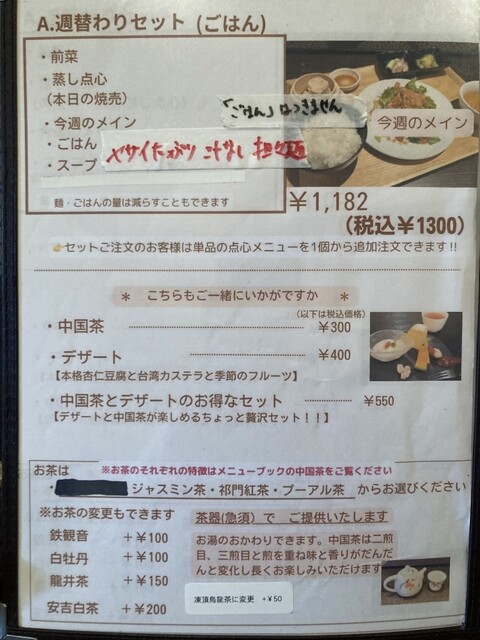 A.週替わりセット（ごはん）
・前菜
・蒸し点心
（本日の焼売）
・今週のメイン
・ごはん
・スープ
「ごはん」はつきません
今週のメイン
ヤサイたっぷり 汁なし 担々麺
麺・ごはんの量は減らすこともできます
￥1,182
（税込￥1300）
セットご注文のお客様は単品の点心メニューを1個から追加注文できます!!
＊ こちらもご一緒にいかがですか ＊
（以下は税込価格）
・中国茶 ￥300
・デザート ￥400
【本格杏仁豆腐と台湾カステラと季節のフルーツ】
・中国茶とデザートのお得なセット ￥550
【デザートと中国茶が楽しめるちょっと贅沢セット！！】
お茶は ※お茶のそれぞれの特徴はメニューブックの中国茶をご覧ください
・ ジャスミン茶・祁門紅茶・プーアル茶 からお選びください
※お茶の変更もできます
鉄観音 +￥100
白牡丹 +￥100
龍井茶 +￥150
安吉白茶 +￥200
茶器(急須）で ご提供いたします
お湯のおかわりできます。中国茶は二煎
目、三煎目と煎を重ね味と香りがだんだ
んと変化し長くお楽しみいただけます
凍頂烏龍茶に変更 +￥50